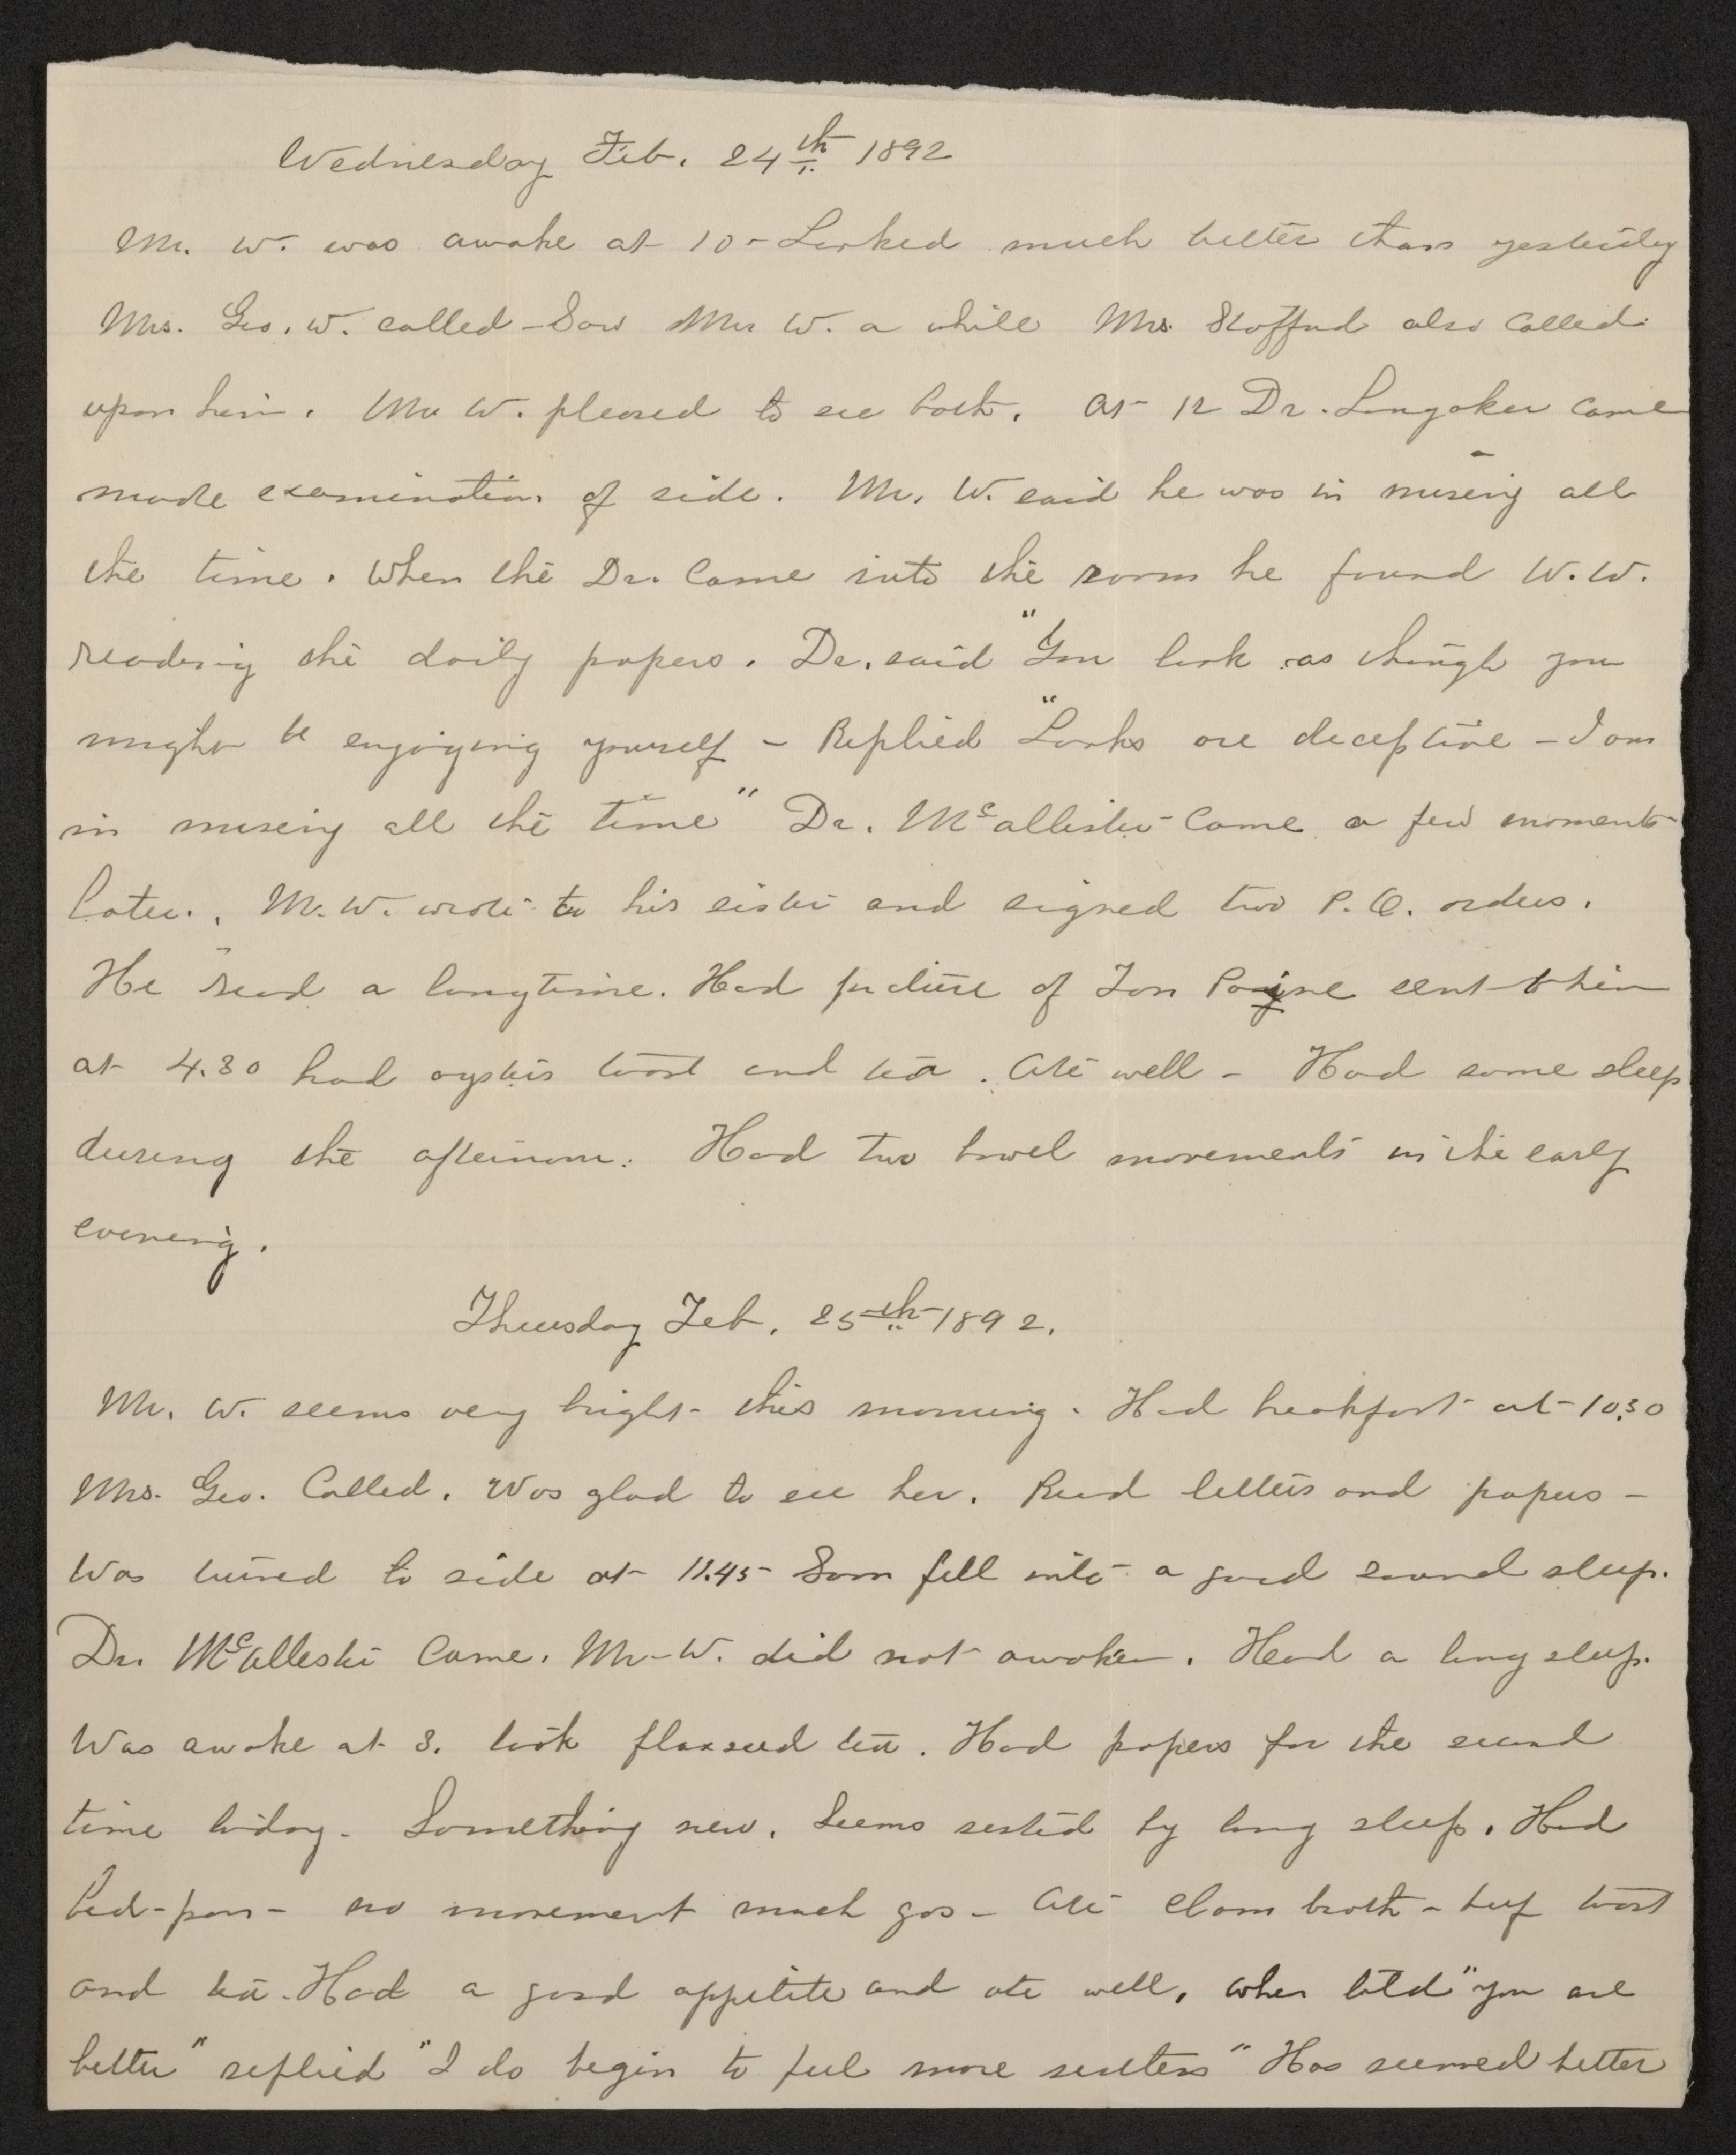 Wednesday Feb. 24th 1892
Mr. W. was awake at 10 - Looked much better than yesterday
Mrs. Geo. W. called - Saw Mr W. a while Mrs. Stafford also called
upon him. Mr W. pleased to see both. At 12 Dr. Longaker came
made examination of side. Mr. W. said he was in misery all
the time. When the Dr. came into the room he found W. W.
reading the daily papers. Dr. said "You look as though you
might be enjoying yourself - Replied "Looks are deceptive - I am
in misery all the time" Dr. McAllister came a few moments
later. Mr. W. wrote to his sister and signed two P. O. orders.
He read a long time. Had picture of Tom Paine sent to him
at 4.30 had oysters toast and tea. Ate well - Had some sleep
during the afternoon. Had two bowel movements in the early
evening.
Thursday Feb. 25th 1892.
Mr. W. seems very bright this morning. Had breakfast at 10.30
Mrs. Geo. Called. Was glad to see her. Read letters and papers -
Was turned to side at 11.45 - Soon fell into a good sound sleep.
Dr. McAllester came. Mr. W. did not awaken. Had a long sleep.
Was awake at 3. took flaxseed tea. Had papers for the second
time today - Something new. Seems rested by long sleep. Had
bed-pan - no movement much gas - Ate clam broth - beef toast
and tea. Had a good appetite and ate well, when told "you are
better" replied "I do begin to feel more" Has seemed better